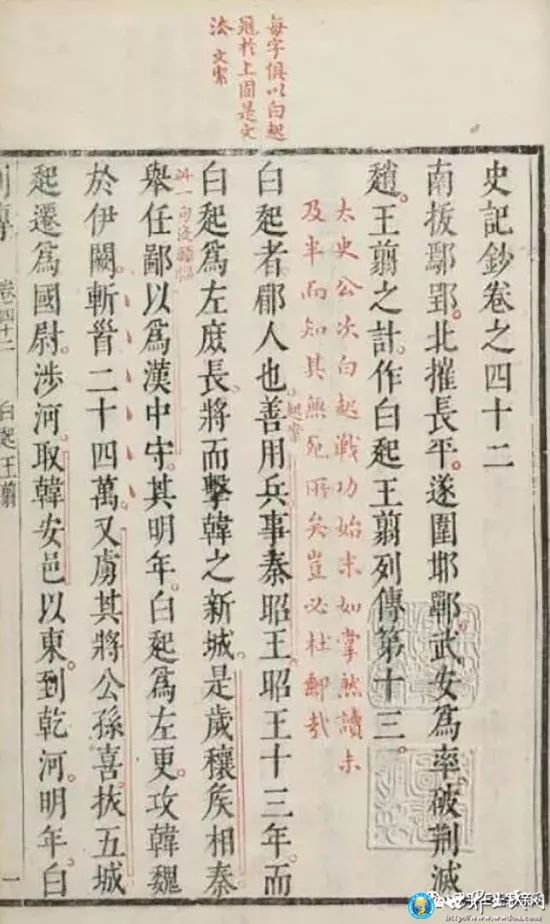 每字俱以白起
冠於上固是文
法
史記鈔卷之四十二
南拔鄢郢。北摧長平。遂圍邯鄲。武安爲率。破荊滅
趙。王翦之計。作白起王翦列傳第十三。
太史公次白起戰功始末如掌然讀未
及半而知其無死所矣豈必杜郵哉
白起者郿人也。善用兵事秦昭王。昭王十三年。而
白起爲左庶長。將而擊韓之新城。是歲穰矦相秦
舉任鄙以爲漢中守。其明年。白起爲左更。攻韓魏
於伊闕。斬首二十四萬。又虜其將公孫喜。拔五城
起遷爲國尉。涉河。取韓安邑以東。到乾河。明年。白
卷四十二
白起王翦
一